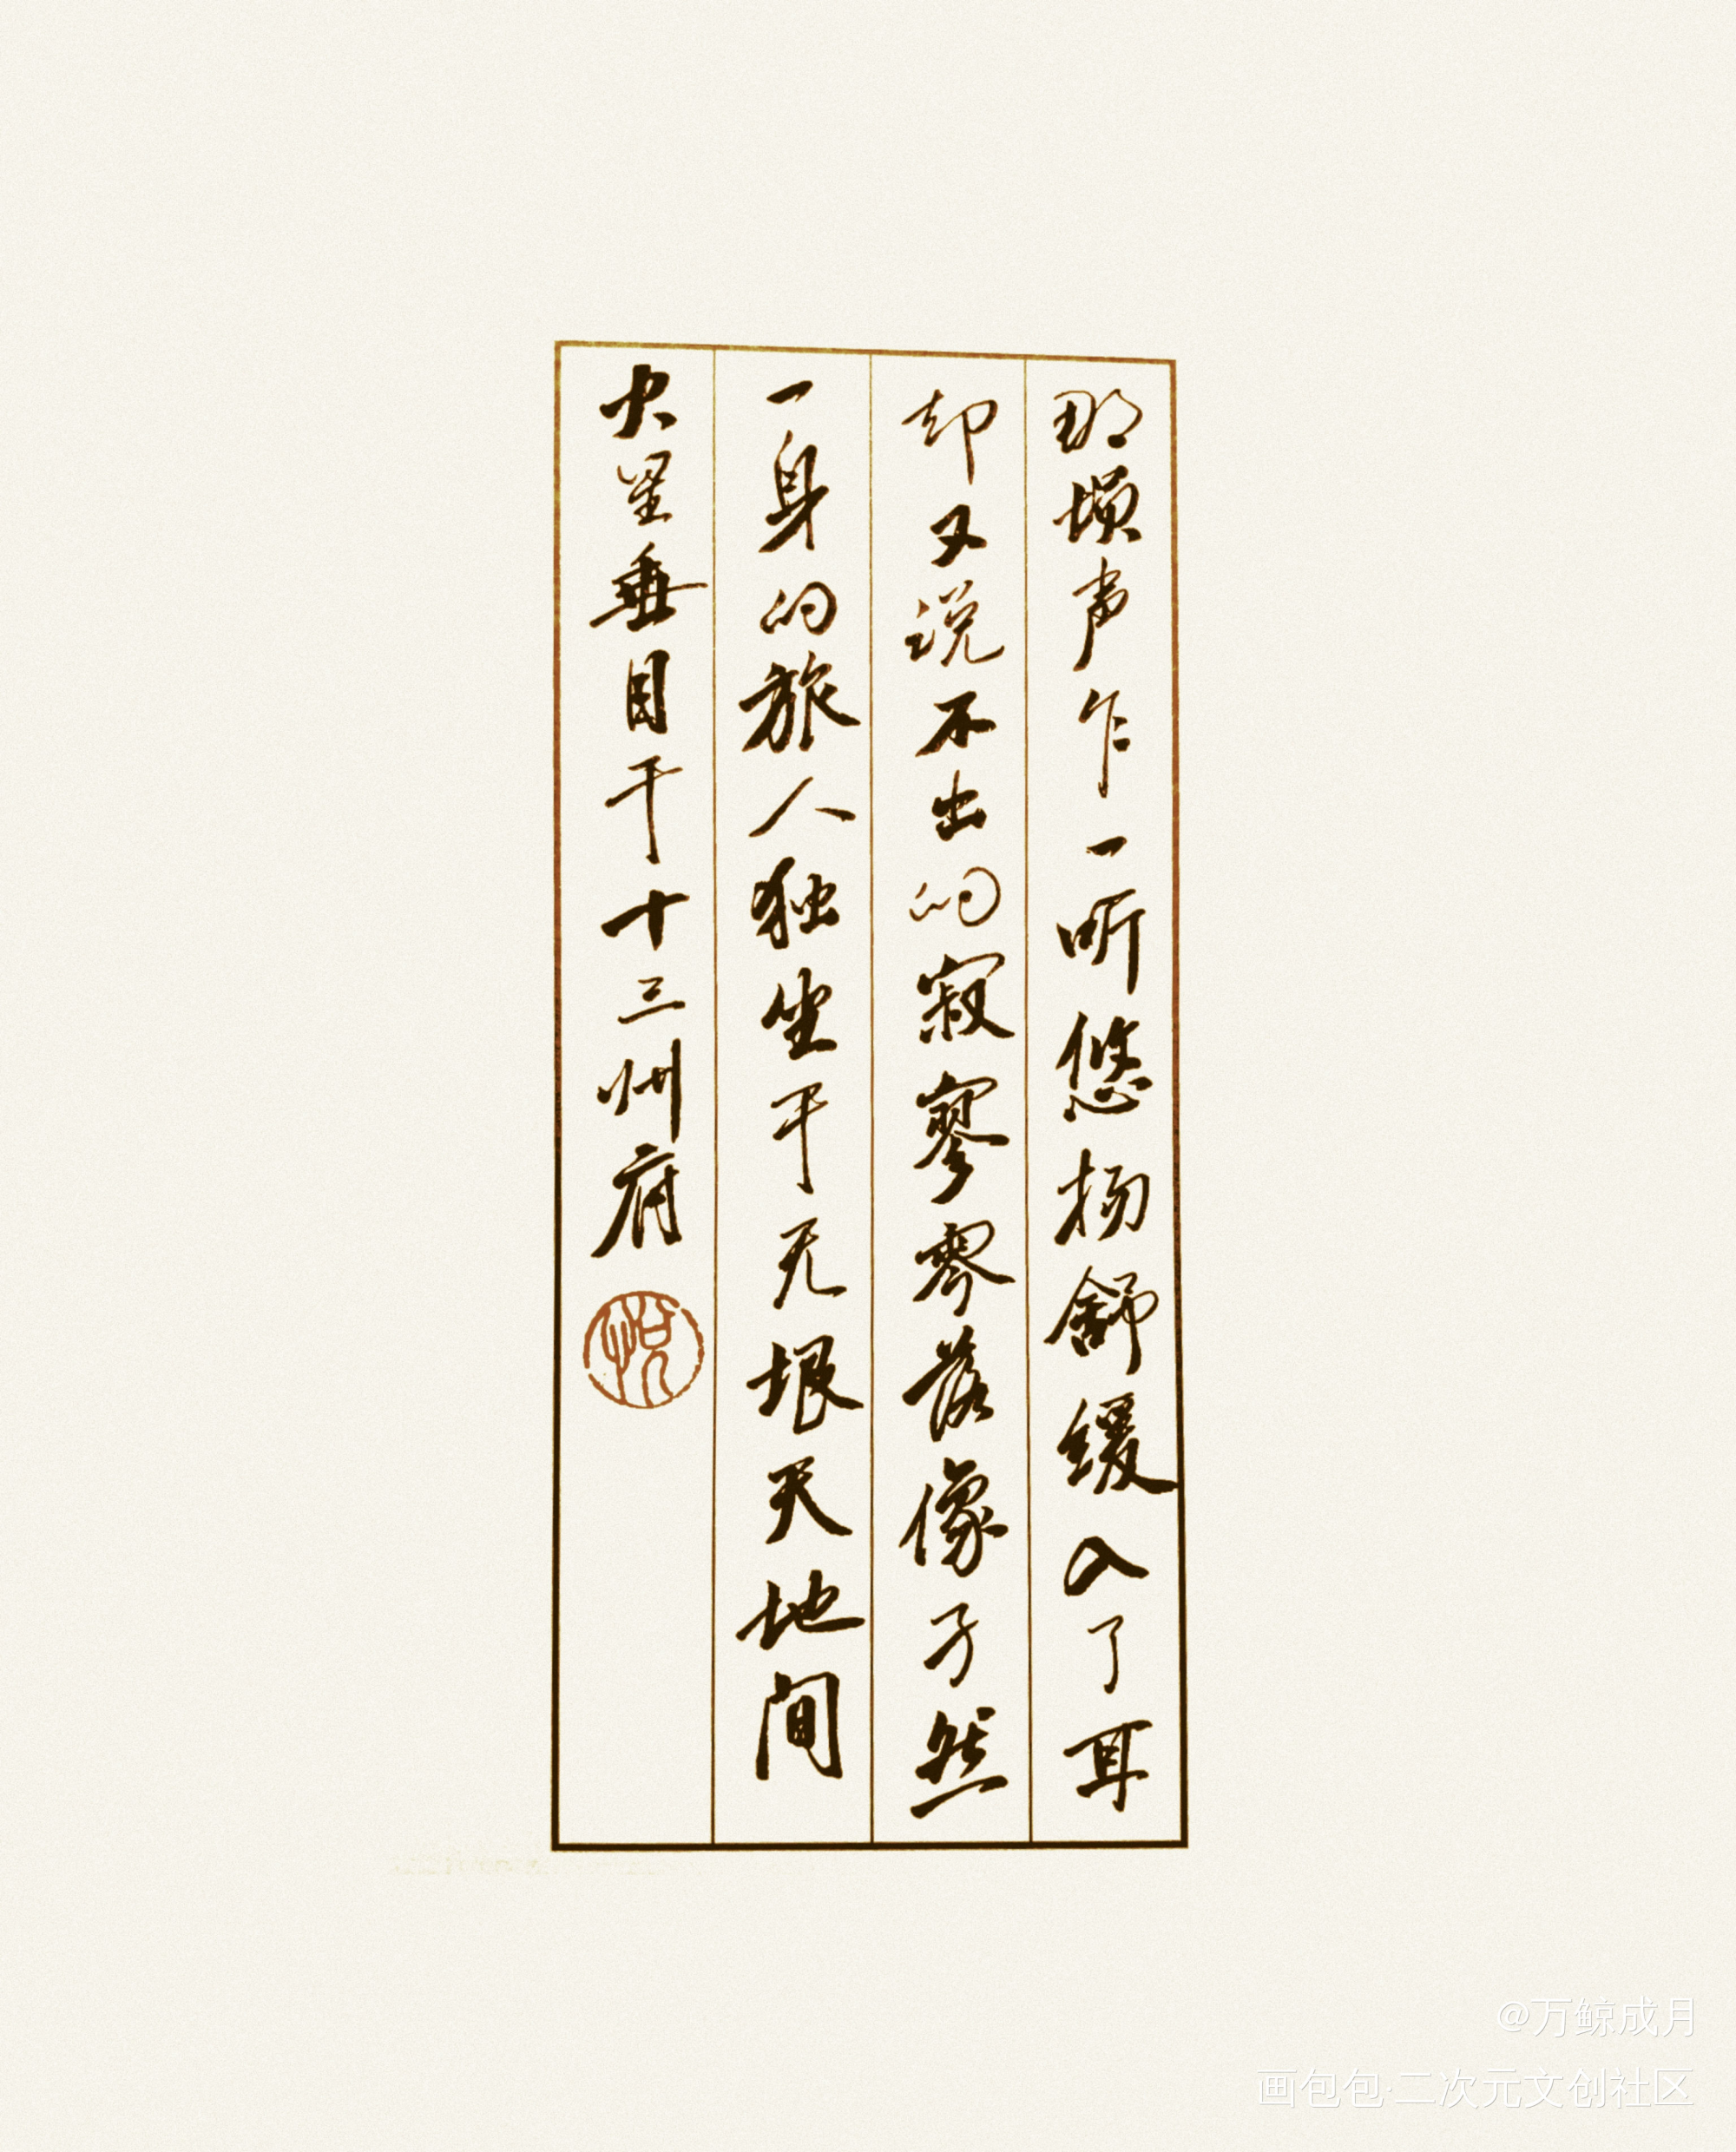 那埙声乍一听悠扬舒缓入了耳
却又说不出的寂寥零落像孑然
一身的旅人独坐于无垠天地间
火星垂目于十三州府
悦
@万鲸成月
画包包·二次元文创社区